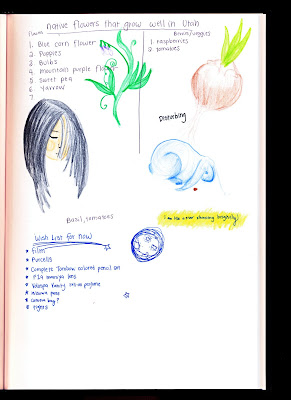 native flowers that grow well in Utah
Flowers
1. Blue corn flower
2. Poppies
3. Bulbs
4. mountain purple flower
5. Sweet pea
6. Yarrow
7
Fruits/veggies
1. raspberries
2. tomatoes
Disturbing
Basil, tomatoes
I am like a
shining brightly
Wish List for now
* film
* Purcells
* Complete Tombow colored pencil set
* PIG
* vanity
perfume
*
pens
* camera bag?
* tights